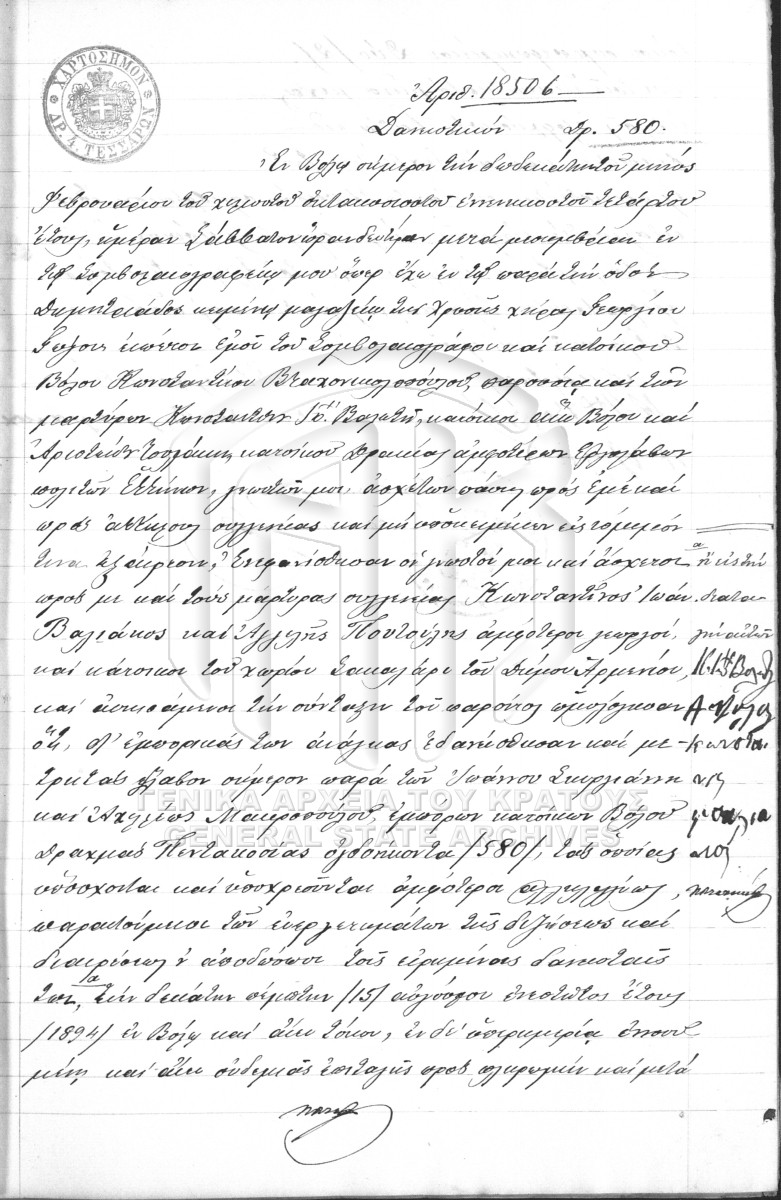 ΧΑΡΤΟΣΗΜΟΝ
ΔΡ. 4. ΤΕΣΣΑΡΩΝ
Ἀριθ. 18506
Δανειστικόν Δρ. 580.
Ἐν Βόλῳ σήμερον τήν δωδεκάτην τοῦ μηνός
Φεβρουαρίου τοῦ χιλιοστοῦ ὀκτακοσιοστοῦ ἐνενηκοστοῦ τετάρτου
ἔτους, ἡμέραν Σάββατον ὥραν δευτέραν μετά μεσημβρίαν ἐν
τῷ Συμβολαιογραφείῳ μου ὅπερ ἔχω ἐν τῷ παρά τήν ὁδόν
Δημητριάδος κειμένῳ μαγαζείῳ τῆς Χρυσῆς χήρας Γεωργίου
ἐνώπιον ἐμοῦ τοῦ συμβολαιογράφου καί κατοίκου
Βόλου Κωνσταντίνου Βλαχονικολοπούλου, παρουσίᾳ καί τῶν
μαρτύρων Κωνσταντίνου Βόλου καί
Ἀριστείδη κατοίκου Δρακίας ἀμφοτέρων
πολιτῶν Ἑλλήνων, γνωστῶν μοι, ἀσχέτων πάσης πρός ἐμέ καί
πρός ἀλλήλους συγγενείας καί μή ὑποκειμένων εἰς νόμιμόν
τινα ἐξαίρεσιν, ἐνεφανίσθησαν οἱ γνωστοί μοι καί ἄσχετοι
πρός με καί τούς μάρτυρας συγγενείας Κωνσταντῖνος Ἰωάν.
Βαλιάκος καί ἀμφότεροι γεωργοί,
καί κάτοικοι τοῦ χωρίου Σακαλάρι τοῦ Δήμου Ἀρμενίου,
καί αἰτησάμενοι τήν σύνταξιν τοῦ παρόντος ὡμολόγησαν
ὅτι, δι' ἐμπορικάς των ἀνάγκας ἐδανείσθησαν καί με-
τρητάς ἔλαβον σήμερον παρά τῶν Ἰωάννου
καί Ἀχιλλέως Μαυροπούλου, ἐμπόρων κατοίκων Βόλου
Δραχμάς Πεντακοσίας ὀγδοήκοντα /580/, τάς ὁποίας
ὑπόσχονται καί ὑποχρεοῦνται ἀμφότεροι ἀλληλεγγύως,
παραιτούμενοι τῶν εὐεργετημάτων τῆς διζήσεως καί
διαιρέσεως ν' ἀποδώσωσι τοῖς εἰρημένοις δανεισταῖς
των, τήν δεκάτην πέμπτην /15/ αὐγούστου ἐνεστῶτος ἔτους
/1894/ ἐν Βόλῳ καί ἄνευ τόκου, ἐν δέ ὑπερημερίᾳ
καί ἄνευ οὐδεμιᾶς ἐπιταγῆς πρός πληρωμήν καί μετά
ΓΕΝΙΚΑ ΑΡΧΕΙΑ ΤΟΥ ΚΡΑΤΟΥΣ
GENERAL STATE ARCHIVES